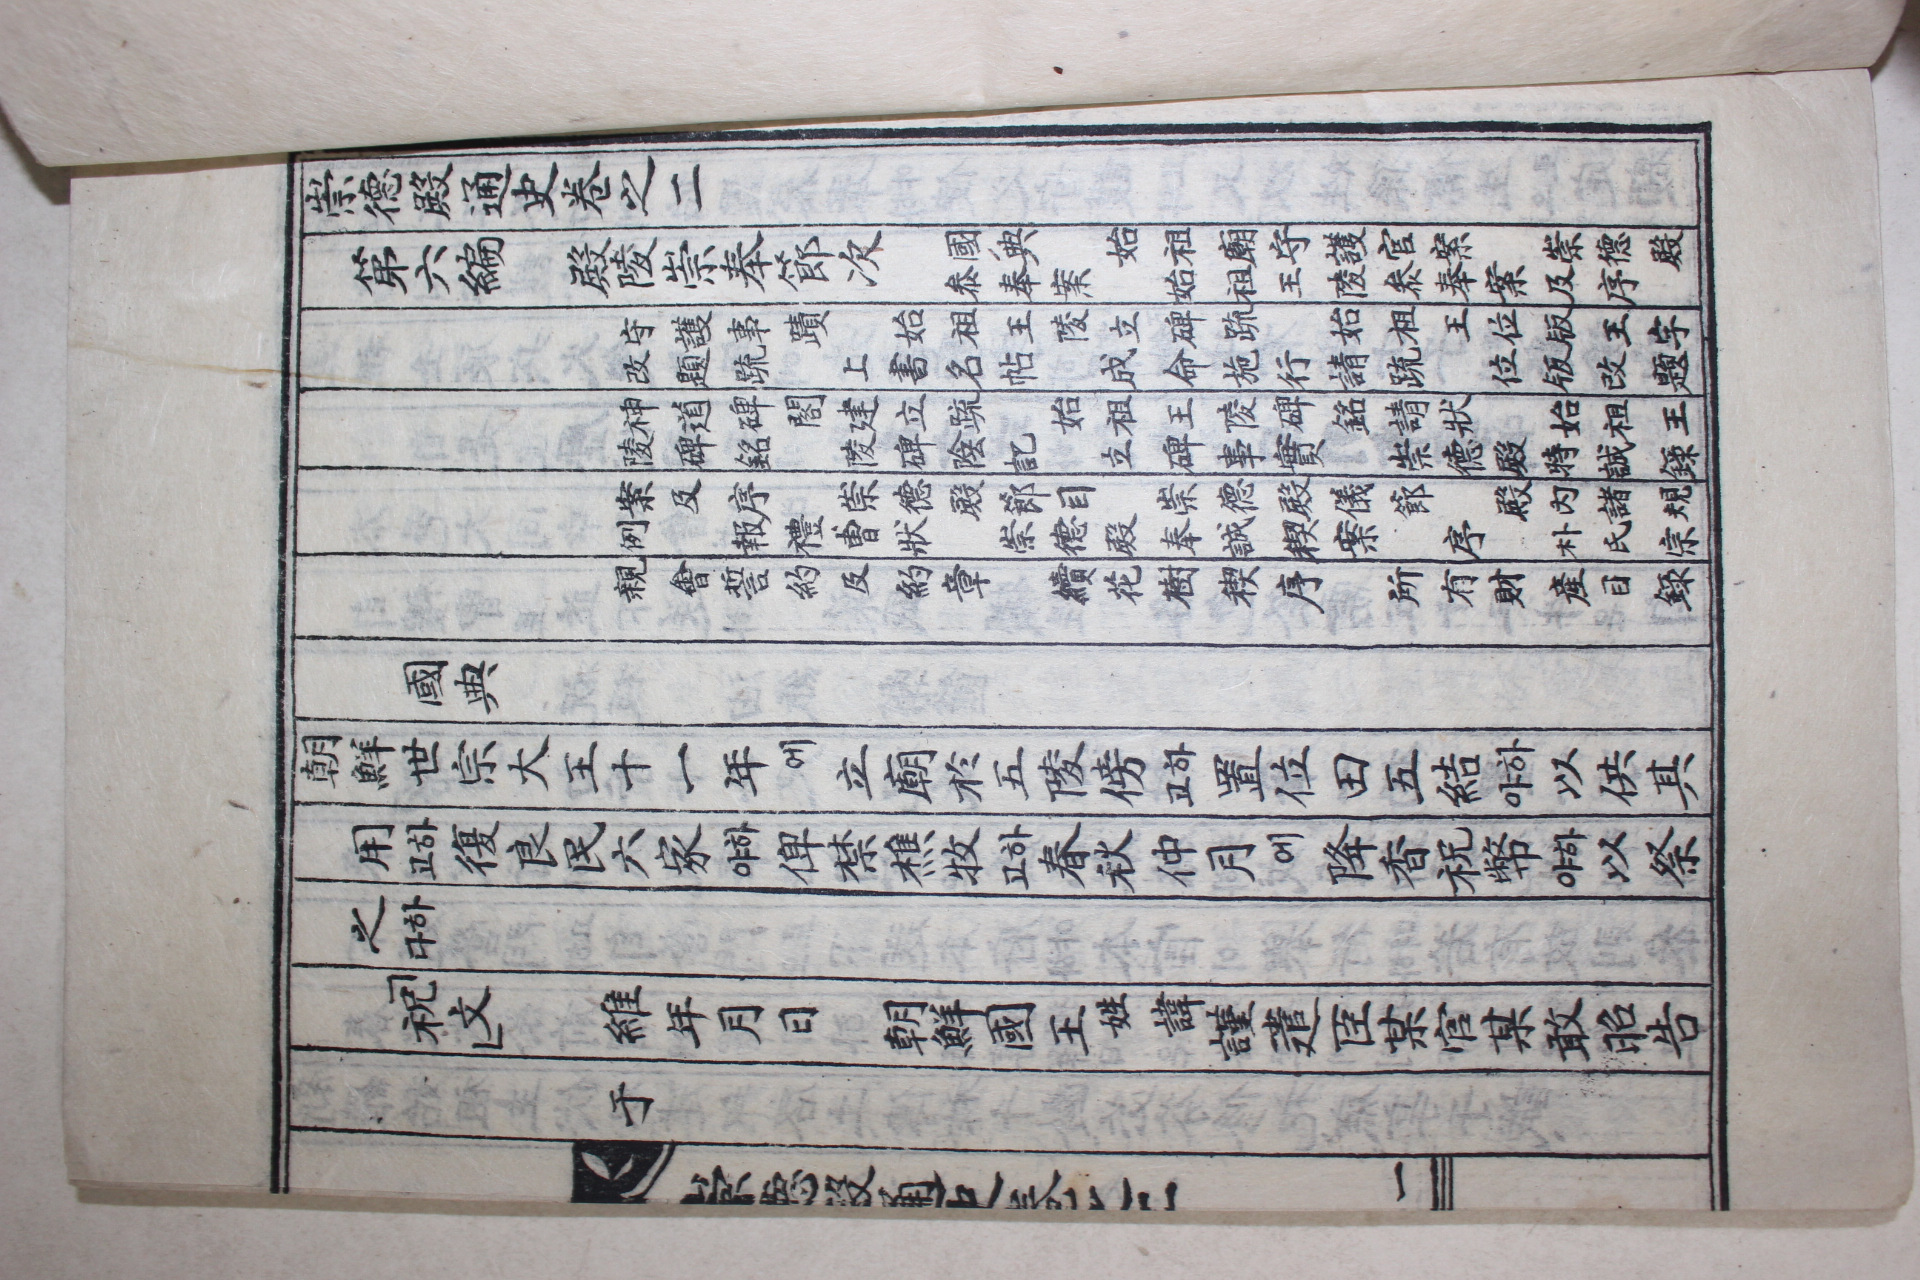 崇德殿通史卷之二
第六編 殿陵崇奉節次 國典 始祖廟守護官案 崇德殿
參奉案 始祖王陵參奉案及序
守護事蹟 始祖王陵立碑疏 始祖王位版王字
改題疏 上書名帖 成命施行請疏 位版改題
神道碑閣建立疏 始祖王陵碑銘請狀 始祖王
陵碑銘 陵碑陰記 立碑事實 崇德殿時誠錄
案及序 崇德殿節目 崇德殿儀節 殿內諸規
例 報禮曹狀 崇德殿奉誠稧案 序 朴氏宗
親會誓約及約章 續花樹稧序 所有財產目錄
國典
朝鮮世宗大王十一年에 立廟於五陵傍하고 置位田五結하야 以供其
用하고 復良民六家하야 俾禁樵牧하고 春秋仲月에 降香祝幣하야 以祭
之하다
「祝文」 維年月日 朝鮮國王姓諱謹遣臣某官某敢昭告
于
崇德殿通史卷之二
一